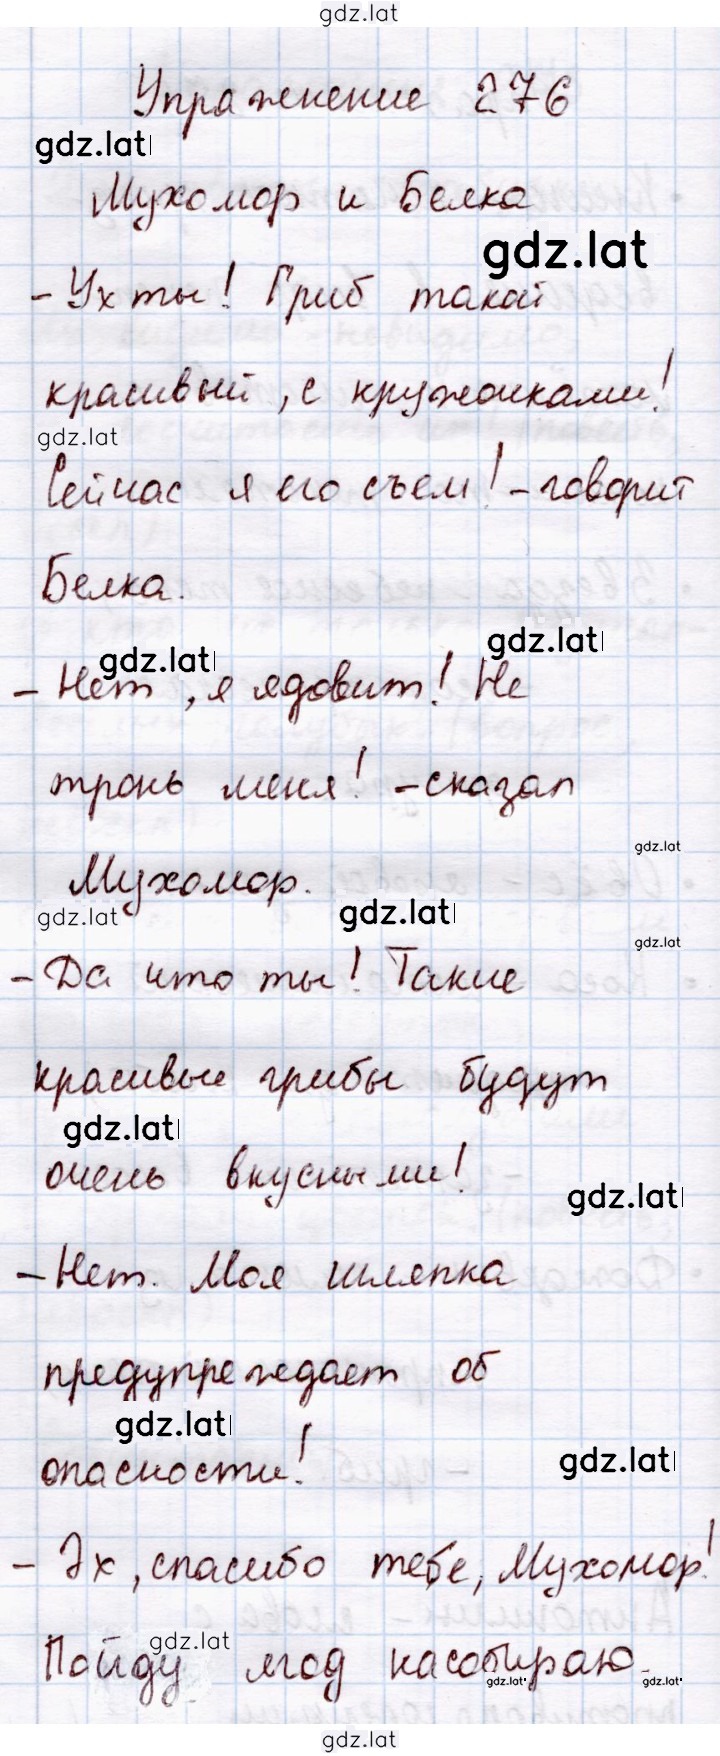 gdz.lat
Упражнение 276
gdz.lat
Мухомор и Белка
gdz.lat
- Ух ты! Гриб такой
красивый, с кружочками!
gdz.lat
Сейчас я его съем! - говорит
Белка.
gdz.lat
gdz.lat
- Нет, я ядовит! Не
тронь меня! - сказал
gdz.lat
Мухомор.
gdz.lat
gdz.lat
gdz.lat
- Да что ты! Такие
красивые грибы будут
gdz.lat
очень вкусными!
gdz.lat
- Нет. Моя шляпка
предупреждает об
gdz.lat
опасности!
gdz.lat
- Эх, спасибо тебе, Мухомор!
gdz.lat
Пойду ягод насобираю.
gdz.lat
gdz.lat
gdz.lat